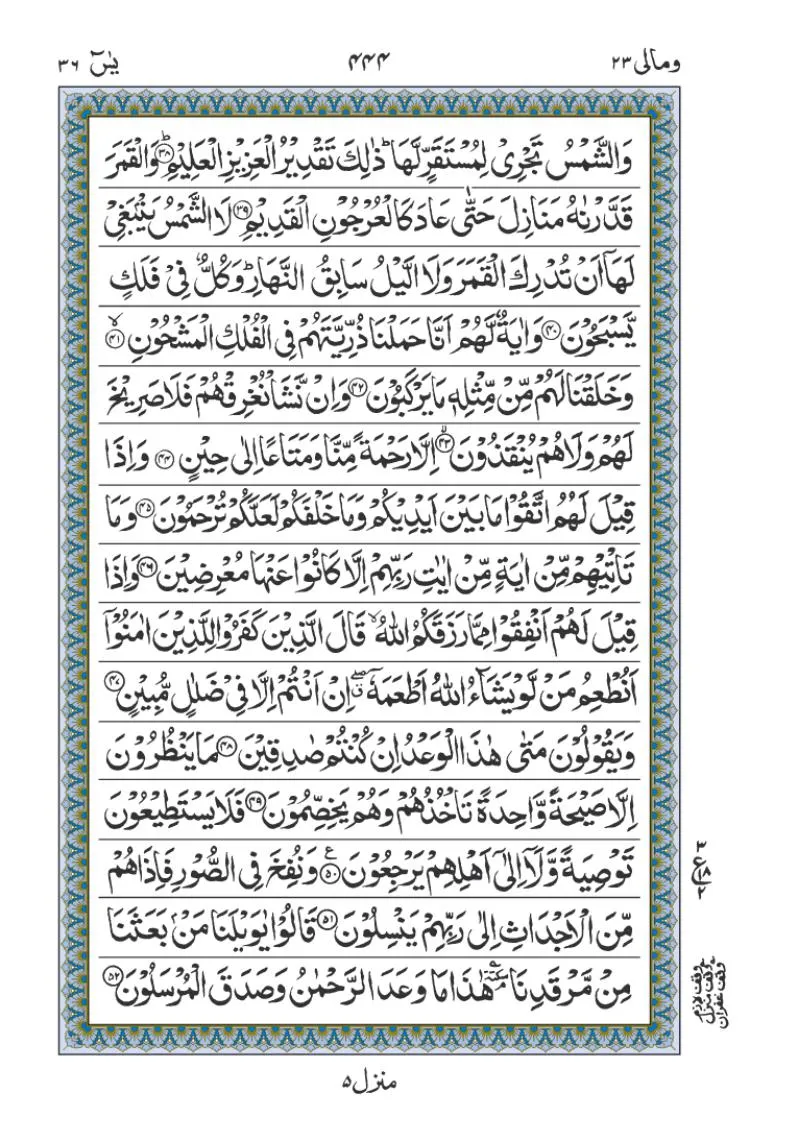 ومالی ۲۳
۴۴۴
یٰسٓ ۳۶
وَالشَّمْسُ تَجْرِیْ لِمُسْتَقَرٍّ لَّهَا ؕ ذٰلِكَ تَقْدِیْرُ الْعَزِیْزِ الْعَلِیْمِ ؕ﴿۳۸﴾ وَالْقَمَرَ
قَدَّرْنٰهُ مَنَازِلَ حَتّٰی عَادَ كَالْعُرْجُوْنِ الْقَدِیْمِ ﴿۳۹﴾ لَا الشَّمْسُ یَنْۢبَغِیْ
لَهَاۤ اَنْ تُدْرِكَ الْقَمَرَ وَلَا الَّیْلُ سَابِقُ النَّهَارِ ؕ وَكُلٌّ فِیْ فَلَكٍ
یَّسْبَحُوْنَ ﴿۴۰﴾ وَاٰیَةٌ لَّهُمْ اَنَّا حَمَلْنَا ذُرِّیَّتَهُمْ فِی الْفُلْكِ الْمَشْحُوْنِ ۙ﴿۴۱﴾
وَخَلَقْنَا لَهُمْ مِّنْ مِّثْلِهٖ مَا یَرْكَبُوْنَ ﴿۴۲﴾ وَاِنْ نَّشَاْ نُغْرِقْهُمْ فَلَا صَرِیْخَ
لَهُمْ وَلَا هُمْ یُنْقَذُوْنَ ۙ﴿۴۳﴾ اِلَّا رَحْمَةً مِّنَّا وَمَتَاعًا اِلٰی حِیْنٍ ﴿۴۴﴾ وَاِذَا
قِیْلَ لَهُمُ اتَّقُوْا مَا بَیْنَ اَیْدِیْكُمْ وَمَا خَلْفَكُمْ لَعَلَّكُمْ تُرْحَمُوْنَ ﴿۴۵﴾ وَمَا
تَاْتِیْهِمْ مِّنْ اٰیَةٍ مِّنْ اٰیٰتِ رَبِّهِمْ اِلَّا كَانُوْا عَنْهَا مُعْرِضِیْنَ ﴿۴۶﴾ وَاِذَا
قِیْلَ لَهُمْ اَنْفِقُوْا مِمَّا رَزَقَكُمُ اللّٰهُ ۙ قَالَ الَّذِیْنَ كَفَرُوْا لِلَّذِیْنَ اٰمَنُوْۤا
اَنُطْعِمُ مَنْ لَّوْ یَشَآءُ اللّٰهُ اَطْعَمَهٗۤ ۖق اِنْ اَنْتُمْ اِلَّا فِیْ ضَلٰلٍ مُّبِیْنٍ ﴿۴۷﴾
وَیَقُوْلُوْنَ مَتٰی هٰذَا الْوَعْدُ اِنْ كُنْتُمْ صٰدِقِیْنَ ﴿۴۸﴾ مَا یَنْظُرُوْنَ
اِلَّا صَیْحَةً وَّاحِدَةً تَاْخُذُهُمْ وَهُمْ یَخِصِّمُوْنَ ﴿۴۹﴾ فَلَا یَسْتَطِیْعُوْنَ
تَوْصِیَةً وَّلَاۤ اِلٰۤی اَهْلِهِمْ یَرْجِعُوْنَ ﴿۵۰﴾ وَنُفِخَ فِی الصُّوْرِ فَاِذَا هُمْ
مِّنَ الْاَجْدَاثِ اِلٰی رَبِّهِمْ یَنْسِلُوْنَ ﴿۵۱﴾ قَالُوْا یٰوَیْلَنَا مَنْۢ بَعَثَنَا
مِنْ مَّرْقَدِنَا ۘ هٰذَا مَا وَعَدَ الرَّحْمٰنُ وَصَدَقَ الْمُرْسَلُوْنَ ﴿۵۲﴾
۳
ع ۱۸
۲
وقف لازم
وقف منزل
وقف غفران
منزل ۵